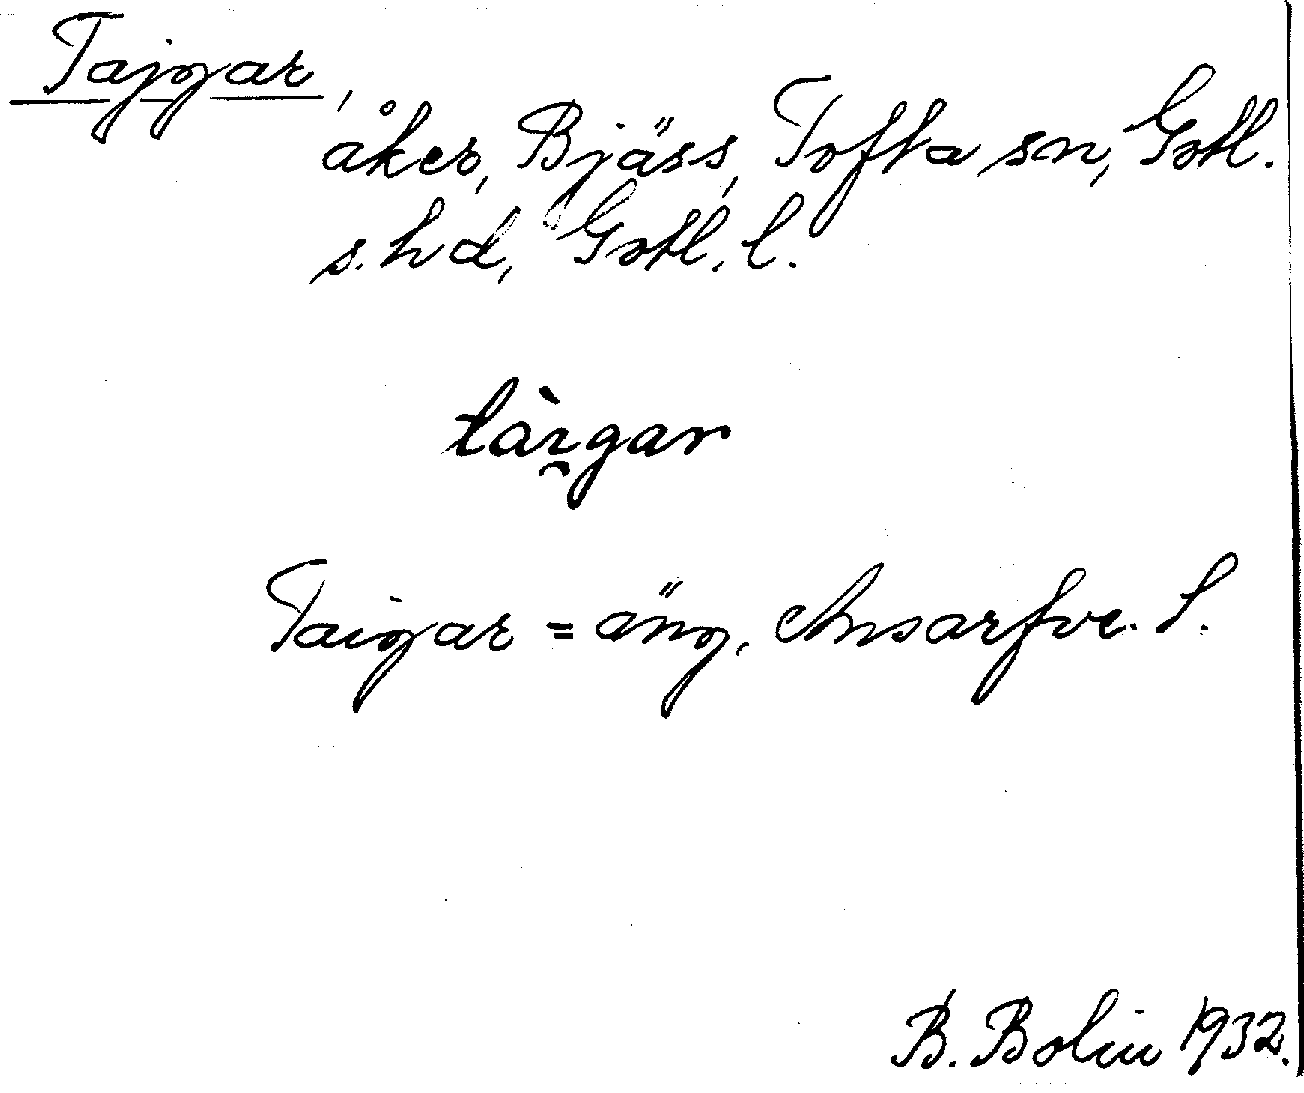 Tajgar,
åker, Bjäss, Tofta sn, Gotl.
s. hd, Gotl. l.
tàı̯gar
Taigar = äng, Ansarfve. S.
B. Bolin 1932.